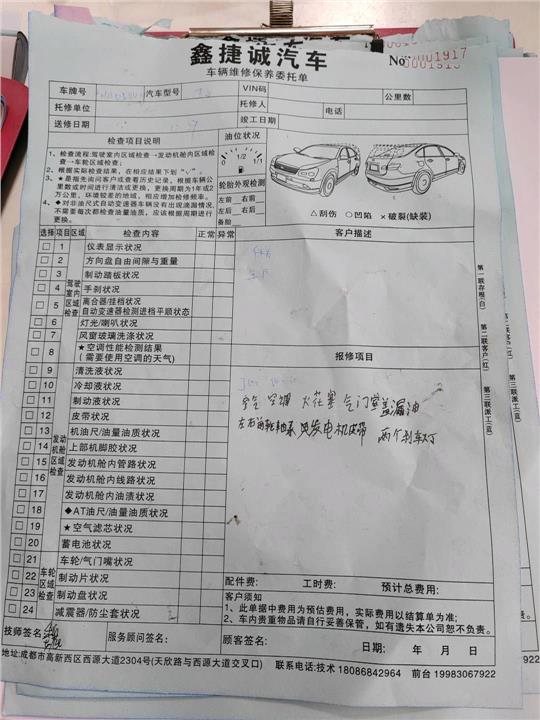 鑫捷诚汽车
车辆维修保养委托单
No:
0001917
车牌号 汽车型号 VIN码 公里数
托修单位 托修人 电话
送修日期 竣工日期
检查项目说明 油位状况
1、检查流程:驾驶室内区域检查→发动机舱内区域检查→车轮区域检查:
2、根据实际检查结果,在相应结果下划"√"。
3、★是指先询问客户或查看历史记录,根据车辆公里数或时间进行清洁或更换,更换周期为1年或2万公里,环境较差的地域,相应增加检修频率。
4、◆对非油尺式自动变速器车辆没有出现滴漏情况,不需要每次都检查油量油质,应该根据周期进行更换。
1/2 1/1
轮胎外观检测
左前 右前
左后 右后
备胎
△刮伤 ○凹陷 ×破裂(缺装)
选择 项目 区域 检查内容 正常 异常 客户描述
驾驶室内区域检查
1 仪表显示状况
2 方向盘自由间隙与重量
3 制动踏板状况
4 手刹状况
5 离合器/挂档状况
自动变速器检测进档平顺状态
6 灯光/喇叭状况
7 风窗玻璃洗涤状况
8 ★空调性能检测结果
(需要使用空调的天气)
发动机舱区域检查
9 清洗液状况
10 冷却液状况
11 制动液状况
12 皮带状况
13 机油尺/油量油质状况
14 上部机脚胶状况
15 发动机舱内管路状况
16 发动机舱内线路状况
17 发动机舱内油渍状况
18 ◆AT油尺/油量油质状况
19 ★空气滤芯状况
20 蓄电池状况
车轮区域检查
21 车轮/气门嘴状况
22 制动片状况
23 制动盘状况
24 减震器/防尘套状况
报修项目
空气 空调 火花塞 气门室盖漏油
左右前轮轴承 发电机皮带 两个刹车灯
第一联存根(白) 第二联客户(红) 第三联派工(蓝)
第三联派工(蓝)
配件费: 工时费: 预计总费用:
客户须知
1、此单据中费用为预估费用,实际费用以结算单为准;
2、车内贵重物品请自行妥善保管,如有遗失本公司恕不负责。
技师签名: 服务顾问签名: 顾客签名: 日期: 年 月 日
地址:成都市高新西区西源大道2304号(天欣路与西源大道交叉口) 联系电话:技术 18086842964 前台 19983067922